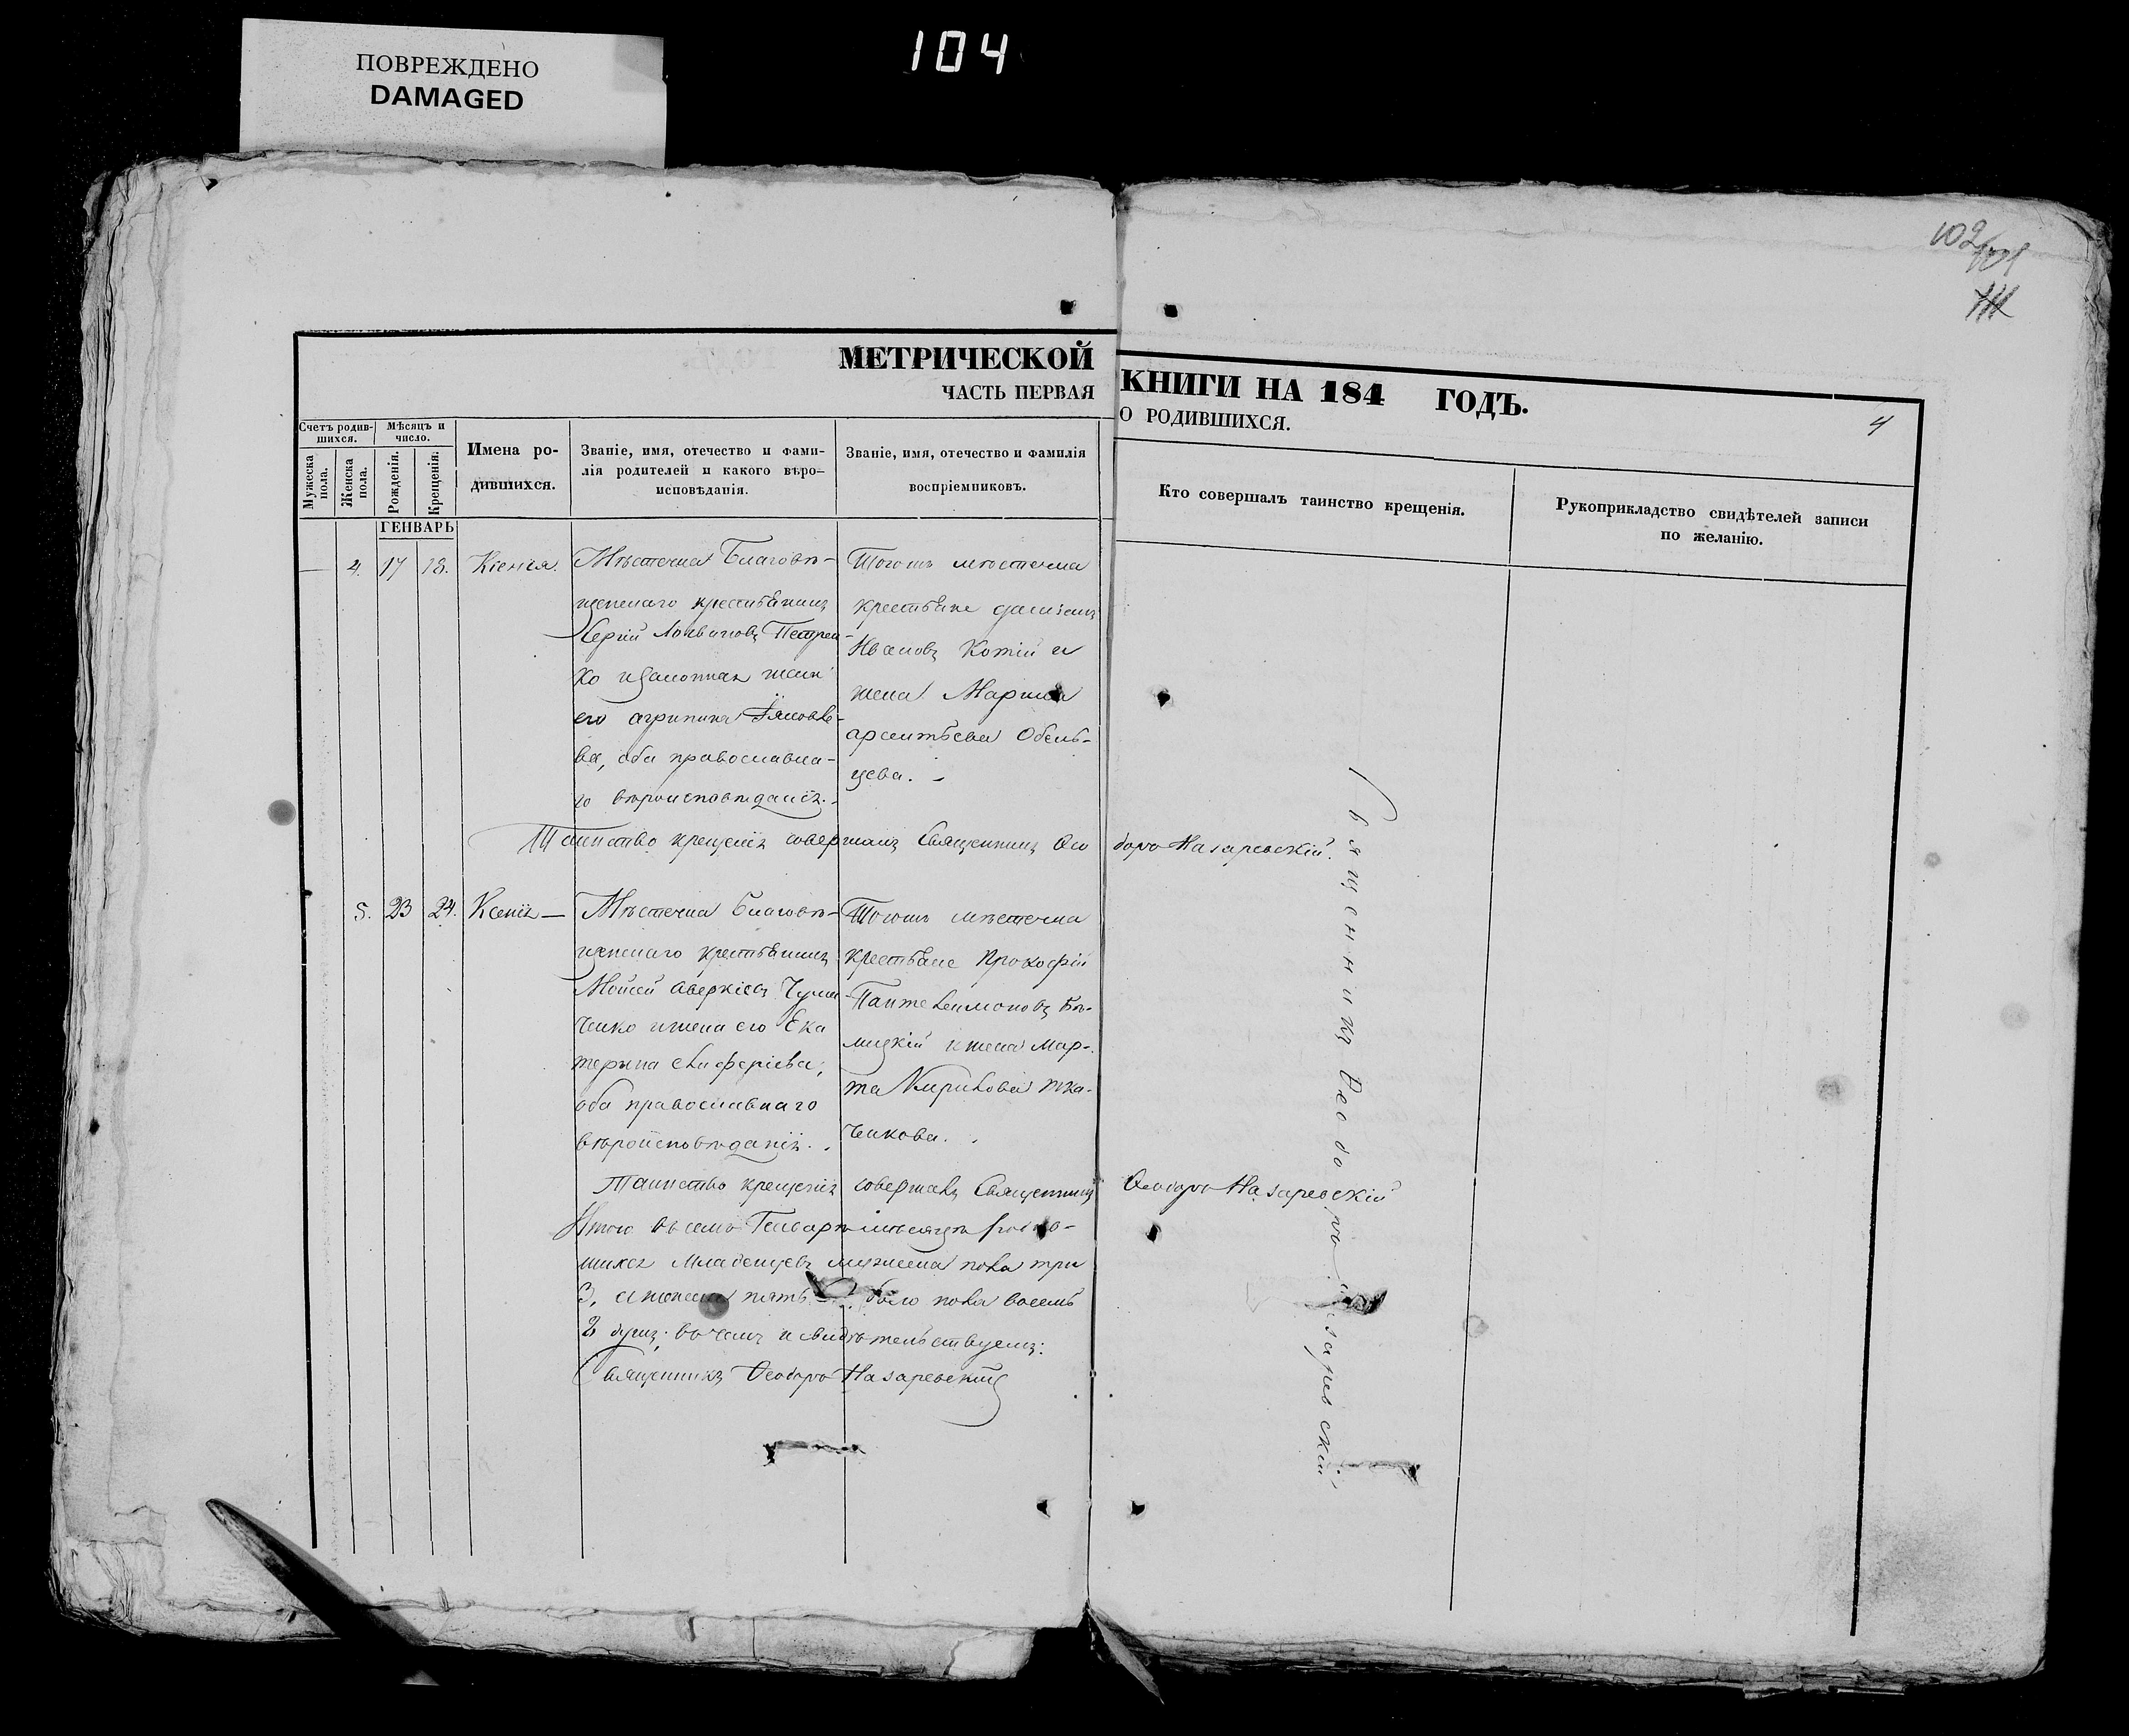 ПОВРЕЖДЕНО
DAMAGED
104
102/101
МЕТРИЧЕСКОЙ КНИГИ НА 184 ГОДЪ.
ЧАСТЬ ПЕРВАЯ О РОДИВШИХСЯ.
4
Счетъ родившихся.
Мужеска пола.
Женска пола.
Мѣсяцъ и число.
Рожденія.
Крещенія.
Имена ро-
дившихся.
Званіе, имя, отечество и фами-
лія родителей и какого вѣро-
исповѣданія.
Званіе, имя, отечество и фамилія
воспріемниковъ.
Кто совершалъ таинство крещенія.
Рукоприкладство свидѣтелей записи
по желанію.
ГЕНВАРЬ
— 4. 17 18. Ксенія.
Мѣстечка Благовѣ-
щенскаго крестьянинъ
Сергій Петрен
ко и законная жена
его агрипина Яковле-
ва, оба православна-
го вѣроисповѣданія.
Тогожъ мѣстечка
крестьяне
Ивановъ Котій и
жена Марина
арсентьева
цева.
Таинство крещенія совершалъ Священникъ Ѳео доръ Назаревскій.
5. 23 24. Ксенія —
Мѣстечка Благовѣ-
щенскаго крестьянинъ
Мойсей аверкіевъ Чума
ченко и жена его Ека
терина елиферіева,
оба православнаго
вѣроисповѣданія.
Тогожъ мѣстечка
крестьяне Прокофій
Пантелеимоновъ Бѣ-
лицкій и жена Мар-
та Кирилова тка-
ченкова.
Таинство крещенія совершалъ Священникъ Ѳеодоръ Назаревскій
Итого въ семъ Генварѣ мѣсяцѣ родив-
шихся Младенцевъ мужеска пола три
3, а женска пять обоего пола восемъ
8 душъ; въ чемъ и свидѣтельствуемъ:
Священникъ Ѳеодоръ Назаревскій
Священникъ Ѳеодоръ Назаревскій